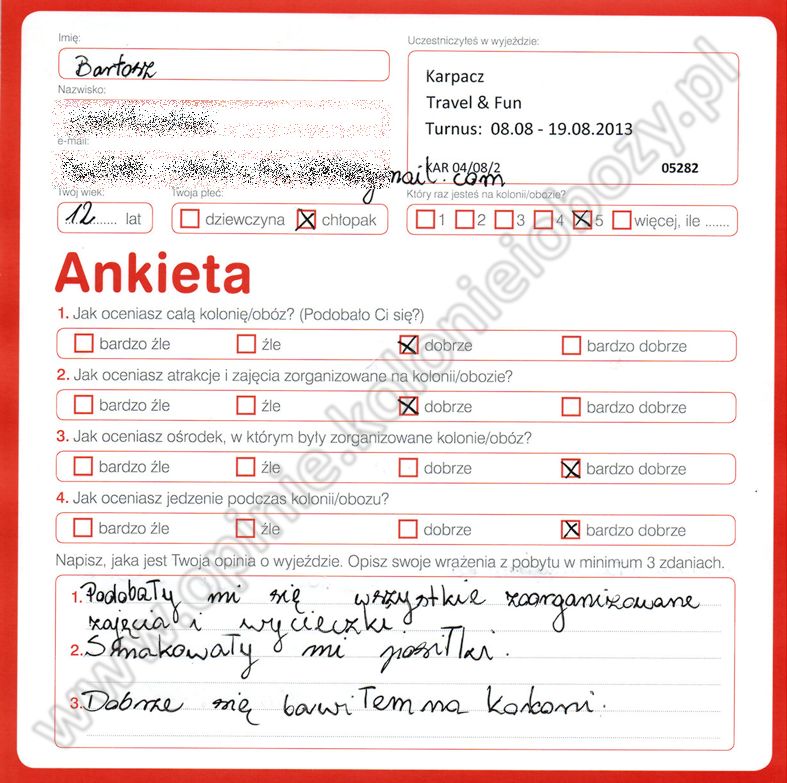 Imię:
Bartosz
Uczestniczyłeś w wyjeździe:
Karpacz
Travel & Fun
Turnus: 08.08 - 19.08.2013
KAR 04/08/2 05282
Nazwisko:
e-mail:
gmail.com
Twój wiek:
12...... lat
Twoja płeć:
dziewczyna chłopak
Który raz jesteś na kolonii/obozie?
1 2 3 4 5 więcej, ile .......
Ankieta
1. Jak oceniasz całą kolonię/obóz? (Podobało Ci się?)
bardzo źle źle dobrze bardzo dobrze
2. Jak oceniasz atrakcje i zajęcia zorganizowane na kolonii/obozie?
bardzo źle źle dobrze bardzo dobrze
3. Jak oceniasz ośrodek, w którym były zorganizowane kolonie/obóz?
bardzo źle źle dobrze bardzo dobrze
4. Jak oceniasz jedzenie podczas kolonii/obozu?
bardzo źle źle dobrze bardzo dobrze
Napisz, jaka jest Twoja opinia o wyjeździe. Opisz swoje wrażenia z pobytu w minimum 3 zdaniach.
1. Podobały mi się wszystkie zoorganizowane
zajęcia i wycieczki
2. Smakowały mi posiłki.
3. Dobrze się bawiłem na koloni.
www.opinie.kolonieiobozy.pl